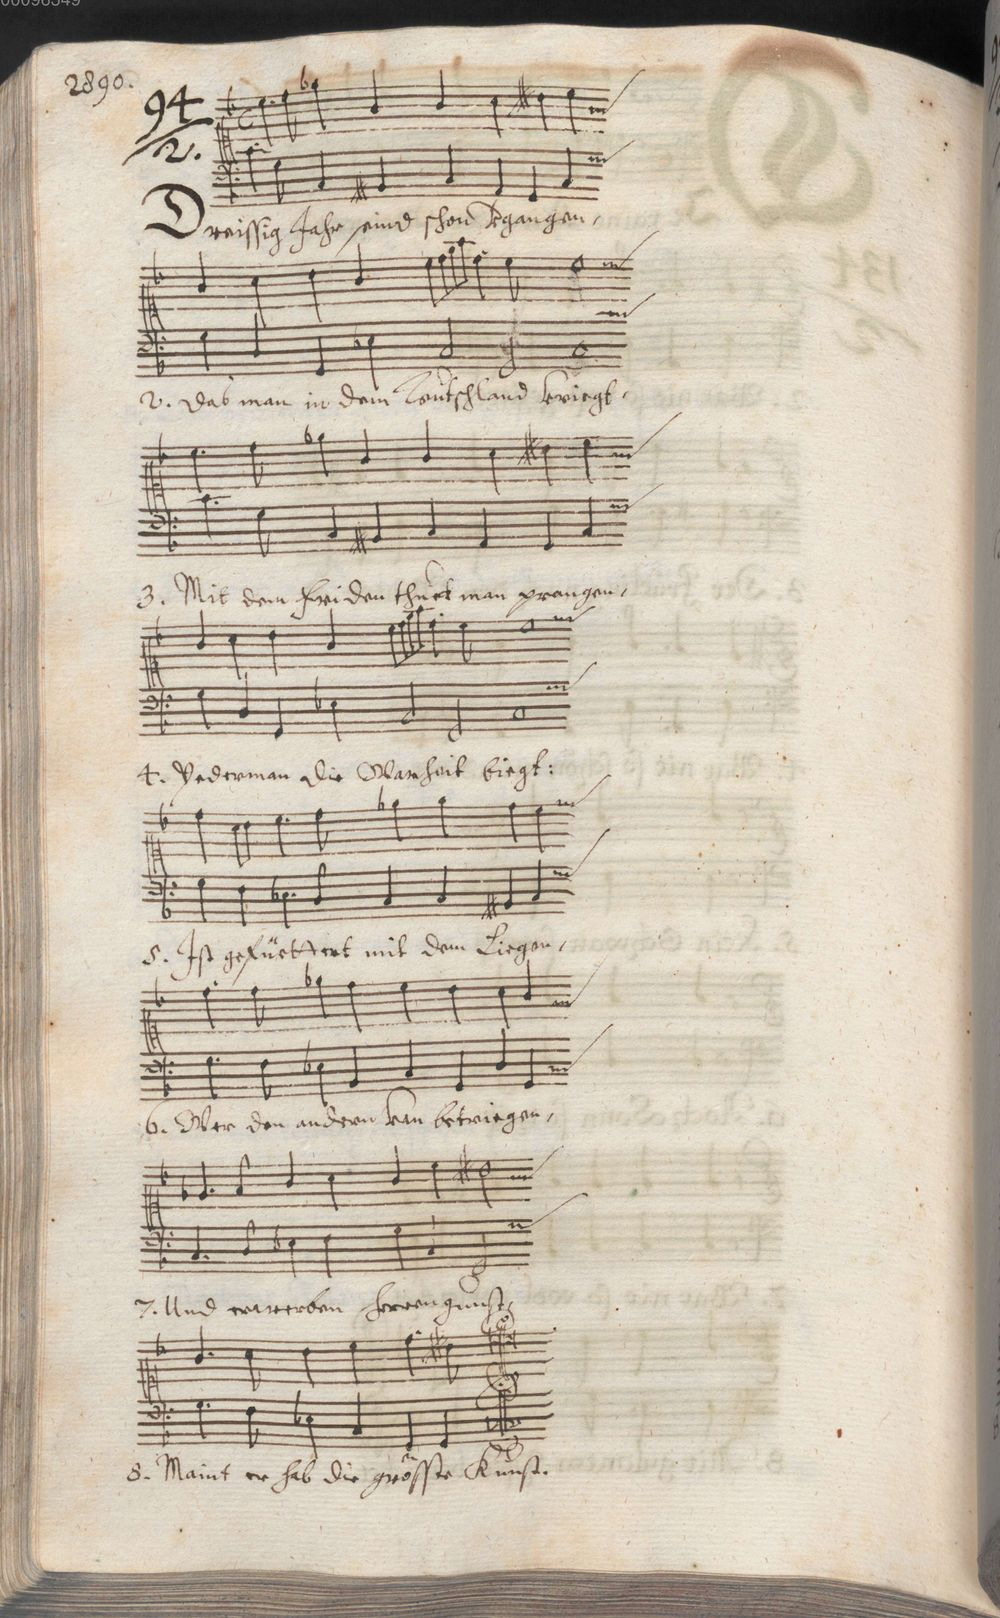 00098349
2890.
94
2.
Dreissig Jahr seind schon vergangen,
2. das man in dem Teutschland kriegt,
3. Mit dem Friden thuet man prangen,
4. Yederman die Warheit biegt:
5. Ist gefüettert mit dem Liegen,
6. Wer den andern kan betriegen,
7. Und erwerben herren gunst,
8. Maint er hab die grösste Kunst.